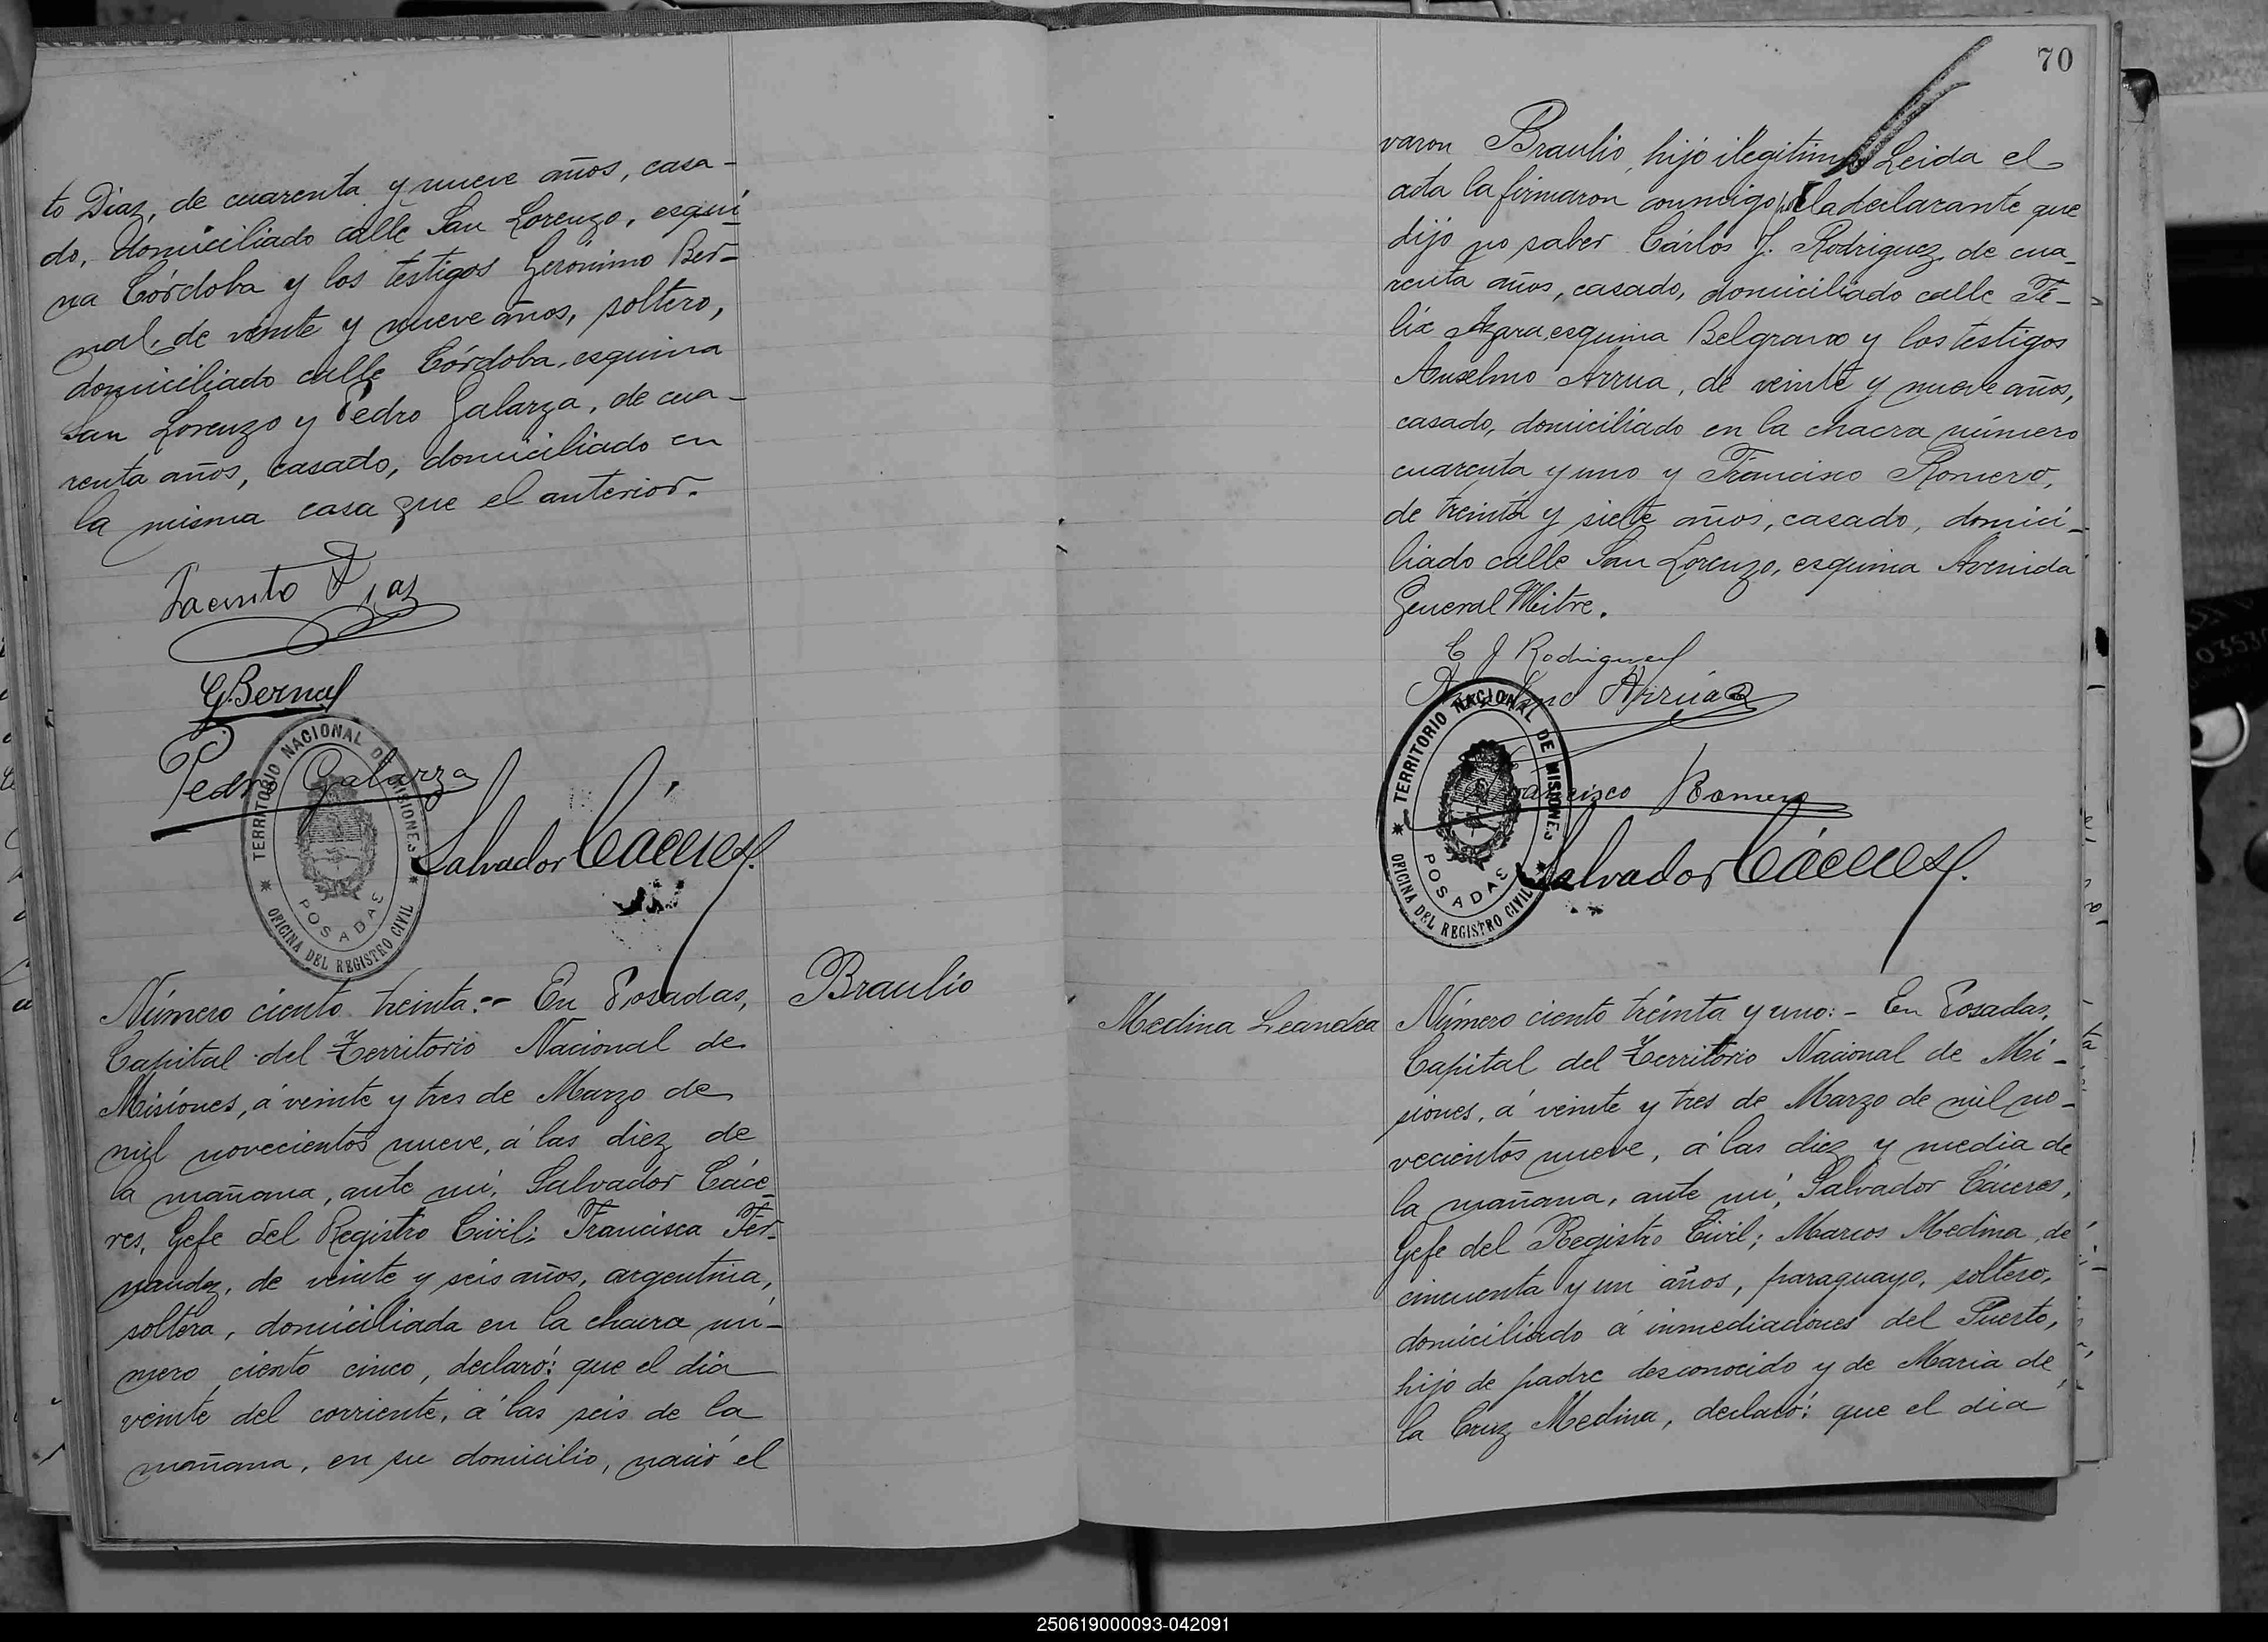 to Diaz, de cuarenta y nueve años, casa-
do, domiciliado calle San Lorenzo, esqui-
na Córdoba y los testigos Gerónimo Ber-
nal, de veinte y nueve años, soltero,
domiciliado calle Córdoba, esquina
San Lorenzo y Pedro Galarza, de cua-
renta años, casado, domiciliado en
la misma casa que el anterior.
Jacinto Diaz
G. Bernal
Pedro Galarza
TERRITORIO NACIONAL DE MISIONES
POSADAS
OFICINA DEL REGISTRO CIVIL
Salvador Cáceres
Braulio
Número ciento treinta:- En Posadas,
Capital del Territorio Nacional de
Misiones, á veinte y tres de Marzo de
mil novecientos nueve, á las diez de
la mañana, ante mí, Salvador Cáce-
res, Gefe del Registro Civil; Francisca Fer-
nandez, de veinte y seis años, argentina,
soltera, domiciliada en la chacra nú-
mero ciento cinco, declaró: que el dia
veinte del corriente, á las seis de la
mañana, en su domicilio, nació el
70
varon Braulio, hijo ilegitimo Leida el
acta la firmaron conmigo, por la declarante que
dijo no saber Cárlos J. Rodriguez, de cua-
renta años, casado, domiciliado calle Fé-
lix Azara, esquina Belgrano y los testigos
Anselmo Arrua, de veinte y nueve años,
casado, domiciliado en la chacra número
cuarenta y uno y Francisco Romero,
de treinta y siete años, casado, domici-
liado calle San Lorenzo, esquina Avenida
General Mitre.
C J Rodriguez
Anselmo Arrúa
TERRITORIO NACIONAL DE MISIONES
POSADAS
OFICINA DEL REGISTRO CIVIL
Francisco Romero
Salvador Cáceres
Medina Leandra
Número ciento treinta y uno:- En Posadas,
Capital del Territorio Nacional de Mi-
siones, á veinte y tres de Marzo de mil no-
vecientos nueve, á las diez y media de
la mañana, ante mí, Salvador Cáceres,
Gefe del Registro Civil; Marcos Medina, de
cincuenta y un años, paraguayo, soltero,
domiciliado á inmediaciones del Puerto,
hijo de padre desconocido y de Maria de
la Cruz Medina, declaró: que el dia
250619000093-042091